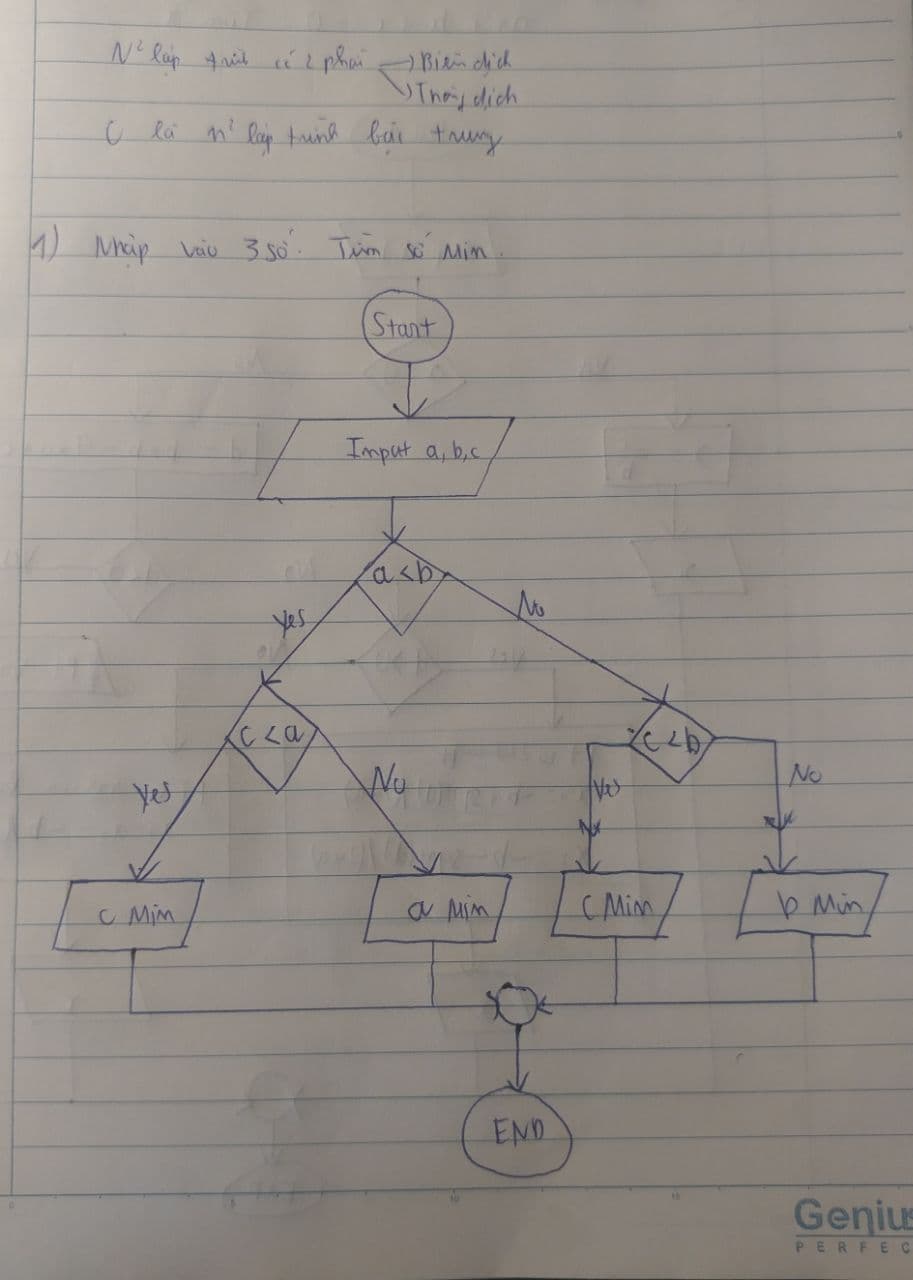 N² lập trình có 2 phái → Biên dịch
→ Thông dịch
C là n² lập trình bậc trung
1) Nhập vào 3 số. Tìm số Min.
Start
Input a, b, c
a < b
Yes
No
c < a
c < b
Yes
No
Yes
No
c Min
a Min
c Min
b Min
END
Genius
PERFEC